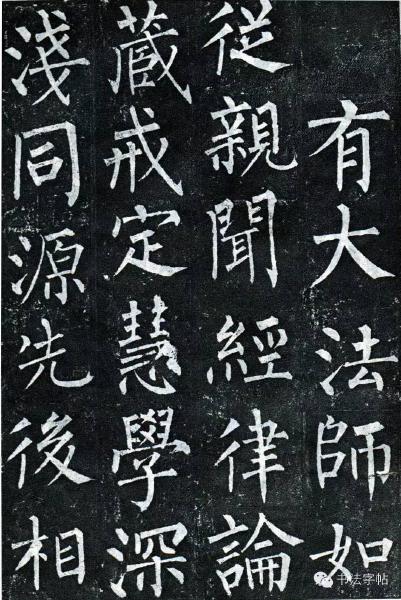 有大法師如
從親聞經律論
藏戒定慧學深
淺同源先後相
书法字帖